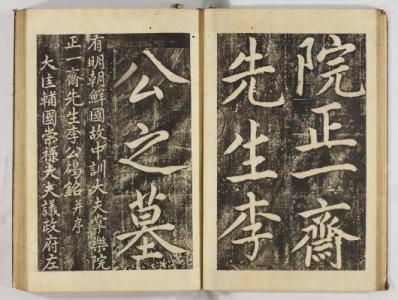 院正一齋
先生李
公之墓
有明朝鮮國故中訓大夫掌樂院
正一齋先生李公碣銘并序
大匡輔國崇祿大夫議政府左